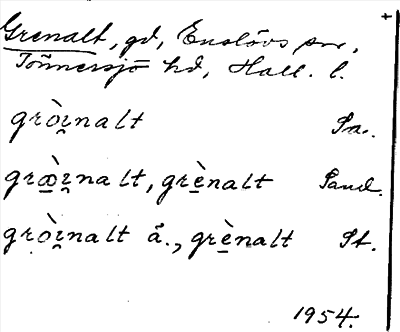 +
Grenalt, gd, Enslövs sn,
Tönnersjö hd, Hall. l.
gròi̯nalt Sa.
græ̀i̯nalt, grènalt Sand.
gròi̯nalt å., grènalt St.
1954.